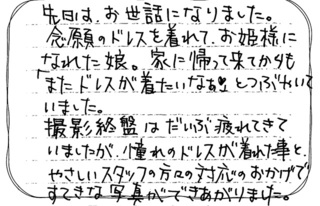 先日は、お世話になりました。
念願のドレスを着れて、お姫様に
なれた娘。家に帰って来てからも
「またドレスが着たいなぁ♥」とつぶやいて
いました。
撮影終盤はだいぶ疲れてきて
いましたが、憧れのドレスが着れた事と、
やさしいスタッフの方々の対応のおかげで
すてきな写真ができあがりました。